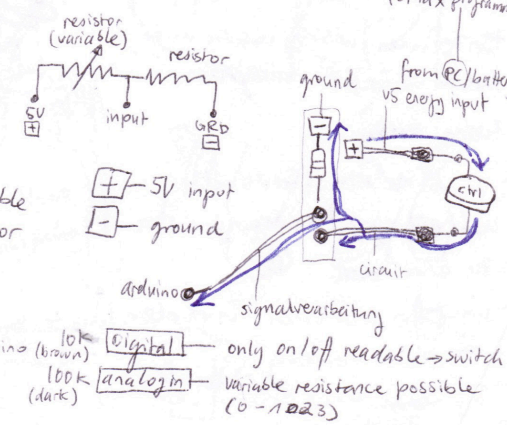 resistor
(variable)
resistor
5V
+
input
GRD
-
ground
from PC/batte
V5 energy input
+
-
ctrl
+ 5V input
- ground
ble
or
circuit
arduino
signalverarbeitung
ino
10k
(brown)
digital
only on/off readable → switch
100k
(dark)
analog in
variable resistance possible
(0-1023)